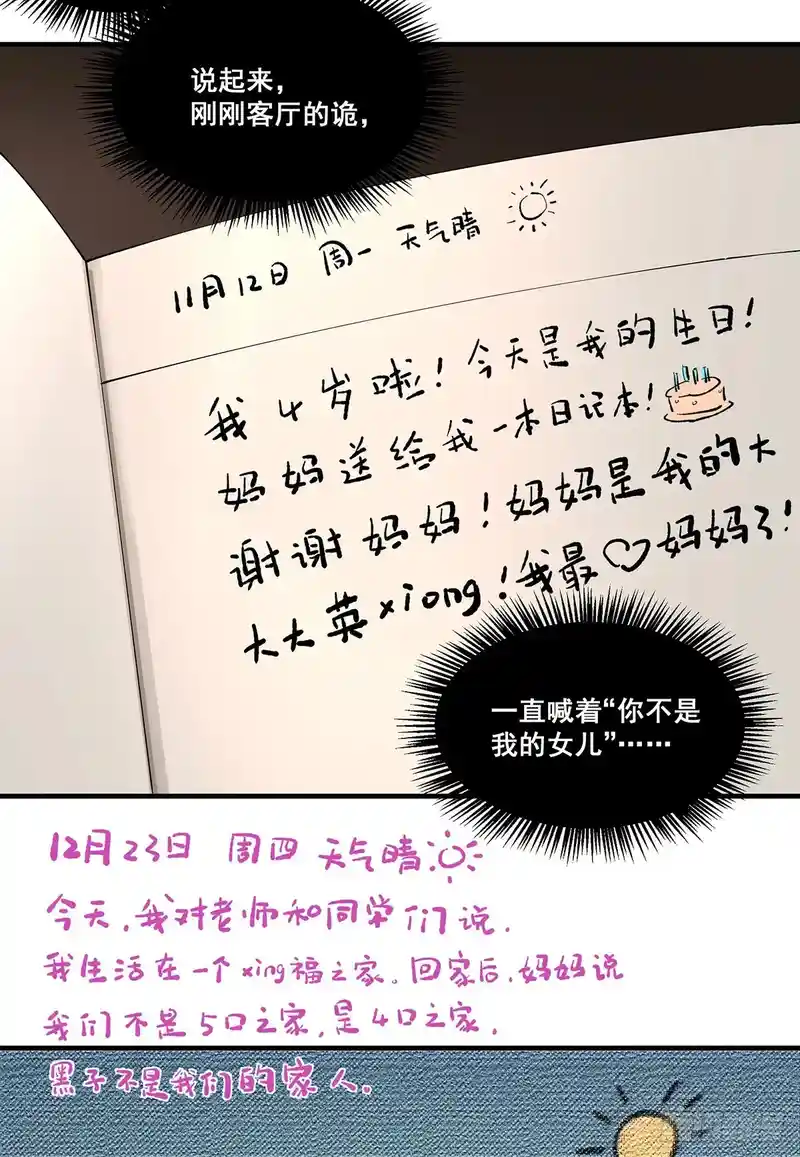 说起来，
刚刚客厅的诡，
11月12日 周一 天气晴
我4岁啦！今天是我的生日！
妈妈送给我一本日记本！
谢谢妈妈！妈妈是我的大
大大英xiong！我最♡妈妈了！
一直喊着“你不是
我的女儿”……
12月23日 周四 天气晴
今天，我对老师和同学们说，
我生活在一个xing福之家。回家后，妈妈说
我们不是5口之家，是4口之家，
黑子不是我们的家人．